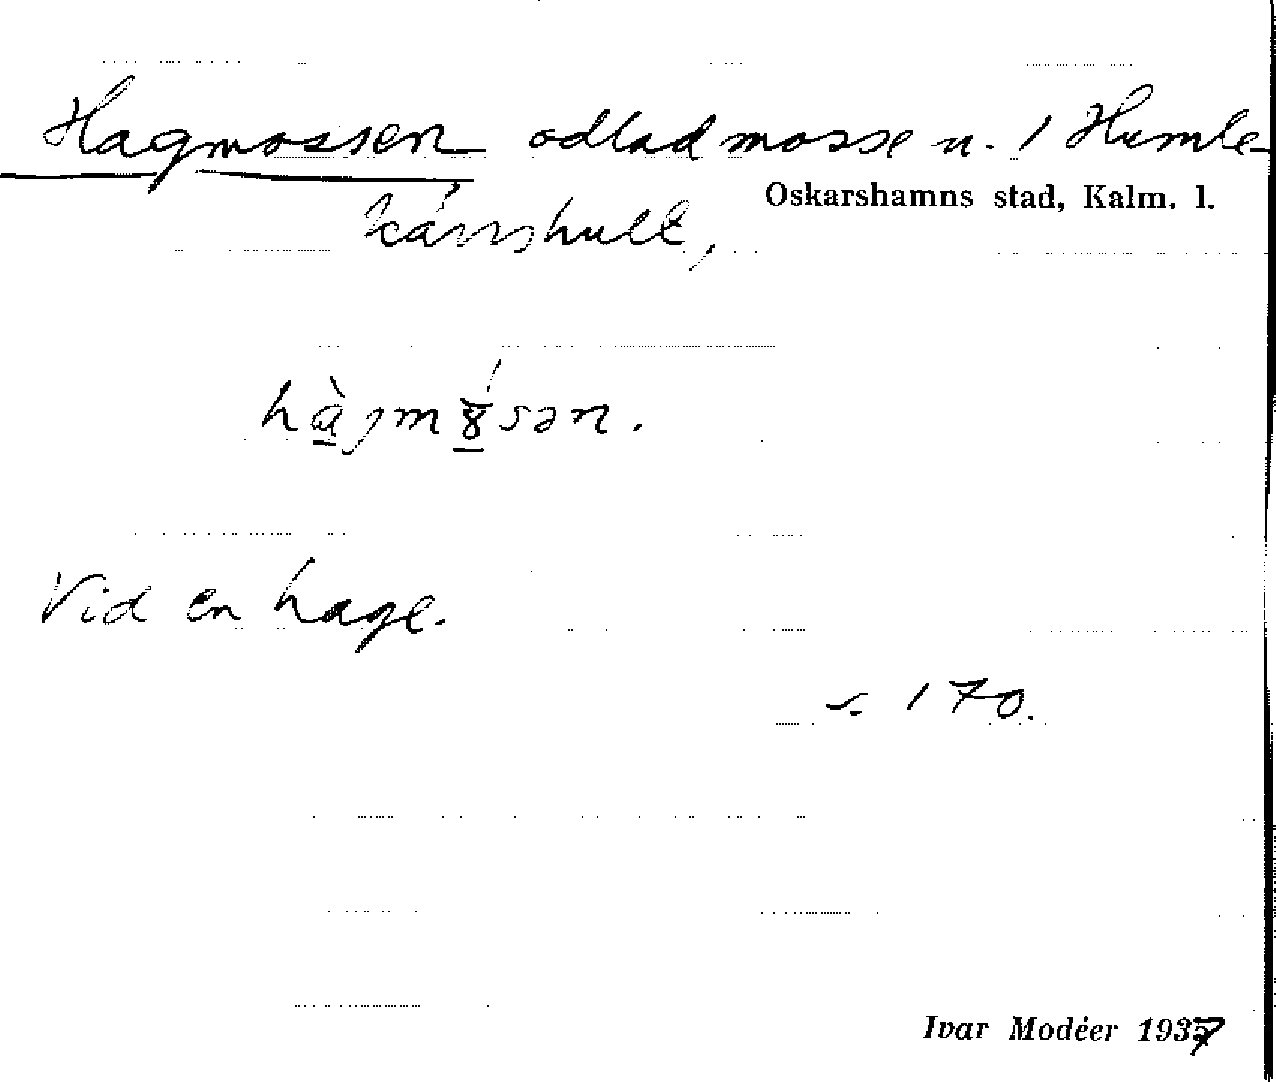 Hagmossen odlad mosse n. / Humle-
Oskarshamns stad, Kalm. l.
kärrshult,
Vid en hage.
s. 170.
Ivar Modéer 1937